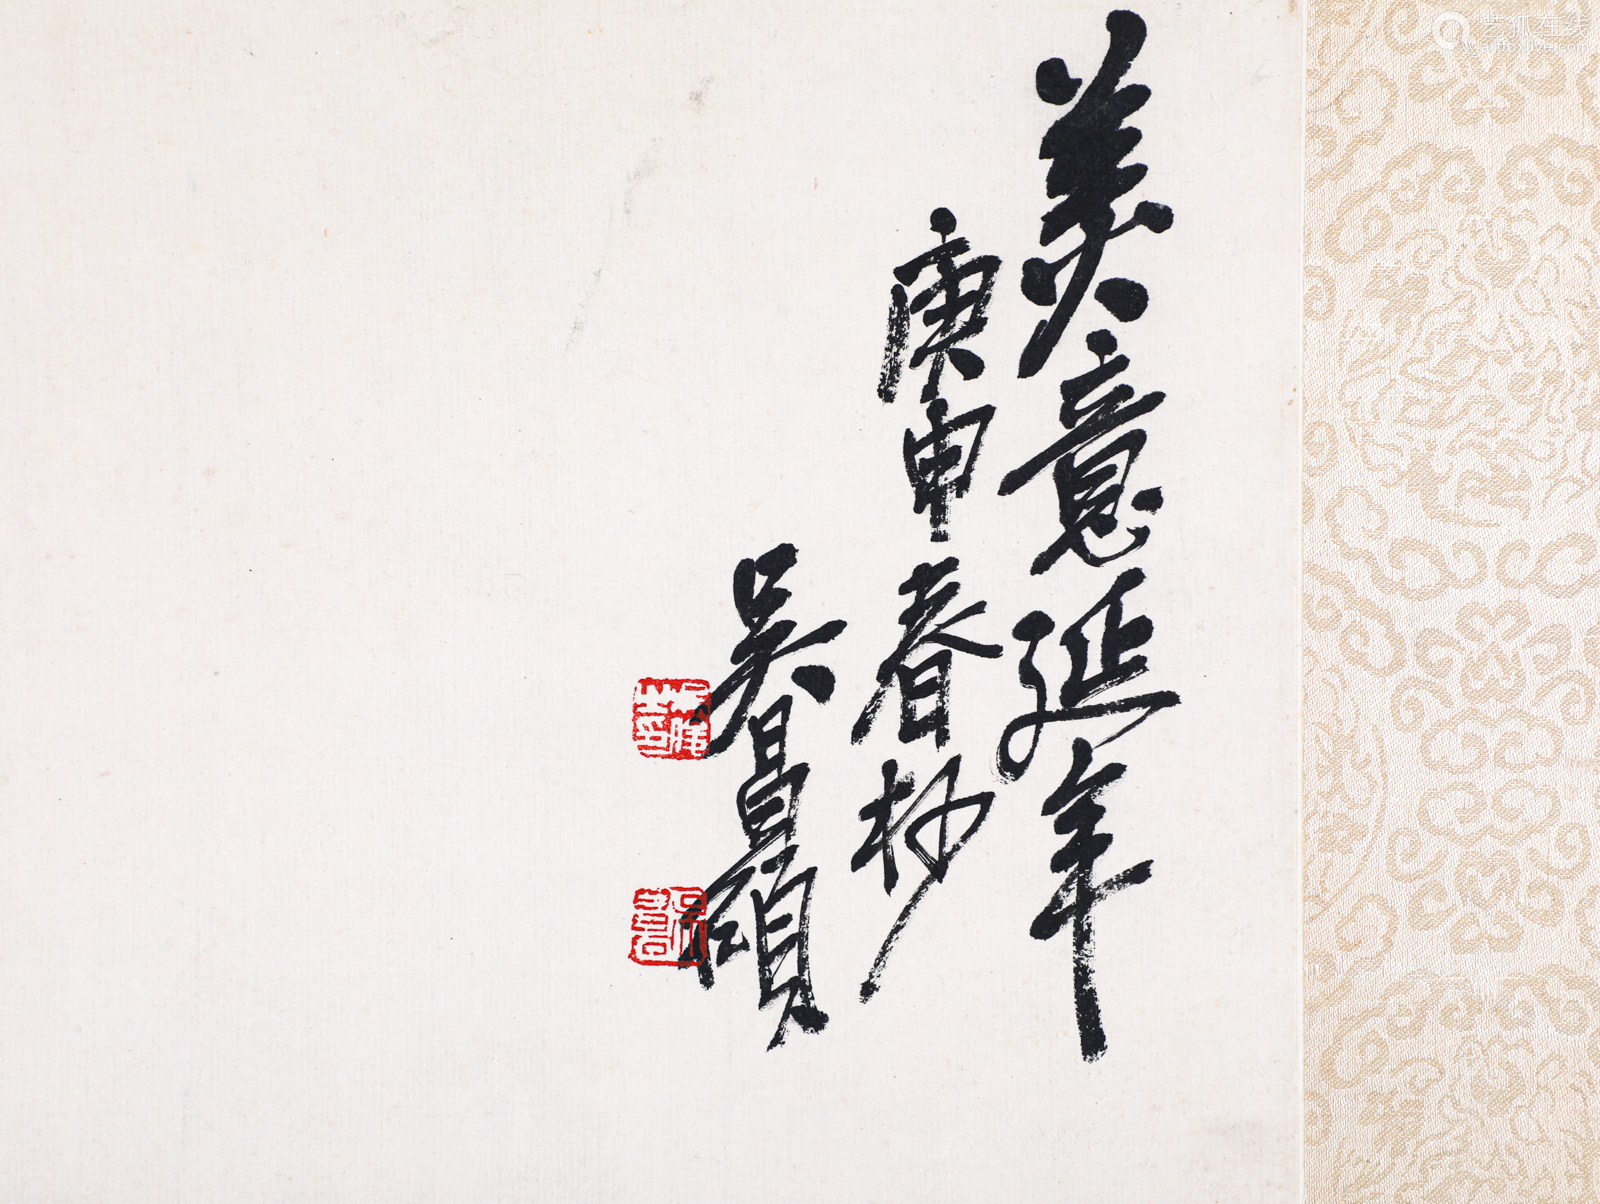 美意延年
庚申春杪
吴昌碩
艺狐在线
artfoxlive.com